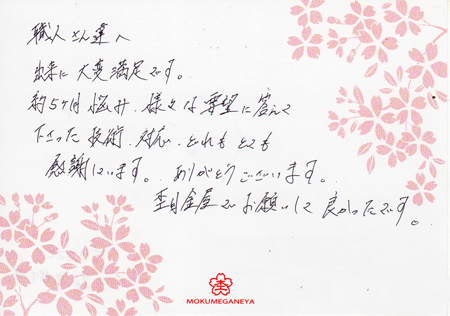 職人さん達へ
出来に大変満足です。
約5ヶ月悩み、様々な要望に答えて
下さった技術、対応、どれもとても
感謝しています。ありがとうございます。
杢目金屋でお願いして良かったです。
MOKUMEGANEYA